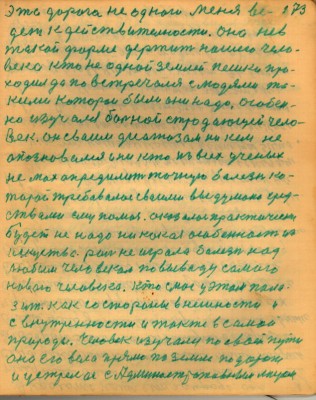 Эта дорога не одного меня ве- 173
дет к действительности. она не в
такой форме держит нашего чело-
века кто не одной землей пешки про-
ходил да по встречался с людями та-
кими которы были ему надо, особен-
но изучали больной страдающей чело-
век. он своим диагозам ни кем не
опозновался ни кто из всех ученых
не мог определить точную болезн ко-
торой требовалося своими выдумано сред-
ствами ему помоч.
будет не надо ни какой особенности из
искуства. раз не играла болезн над
любым человеком по выводу самого
нового человека. кто смог у этом
как со стороны внешности и
с внутренности и также в самой
природы. человек изучали по своей пути
оно его вело прямо по земле по дороги
и устрелся с